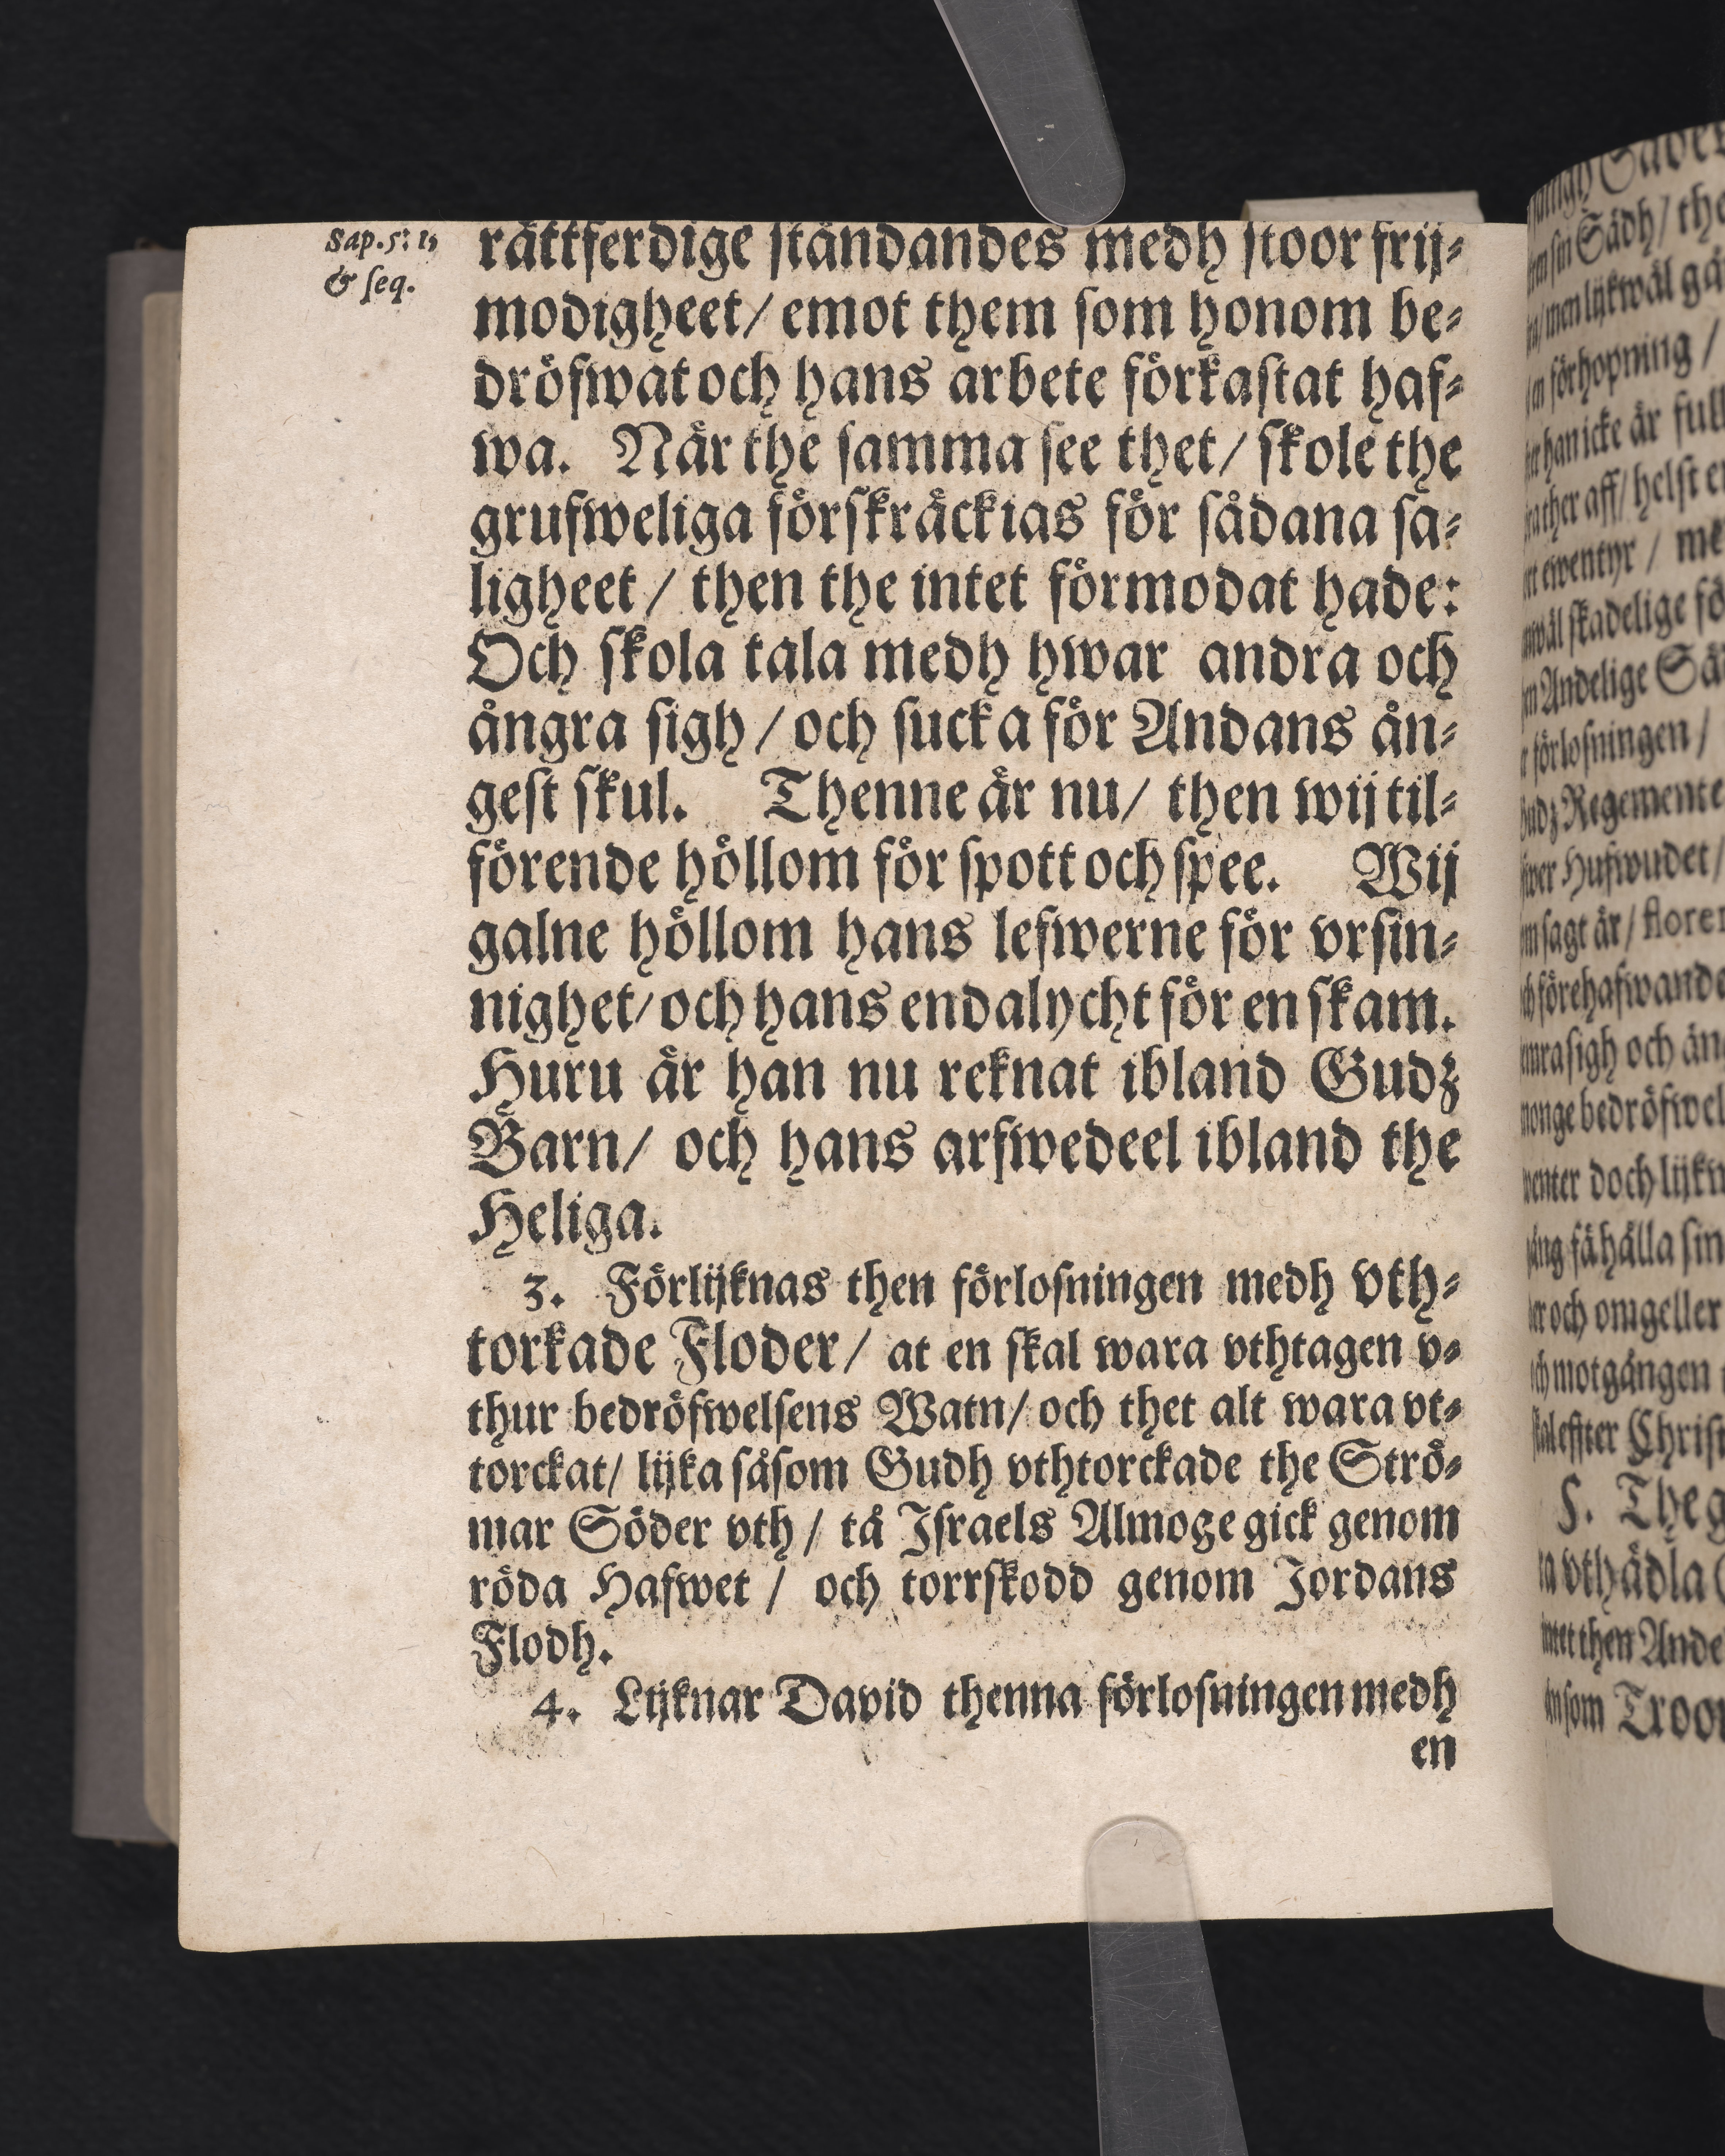 Sap. 5: 1,
& ſeq.
rättferdige ſtåndandes medh ſtoor frij⸗
modigheet/ emot them ſom honom be⸗
dröfwat och hans arbete förkaſtat haf⸗
wa. När the ſamma ſee thet/ ſkole the
grufweliga förſkräckias för ſådana ſa⸗
ligheet / then the intet förmodat hade:
Och ſkola tala medh hwar andra och
ångra ſigh / och ſucka för Andans ån⸗
geſt ſkul. Thenne är nu/ then wij til⸗
förende höllom för ſpott och ſpee. Wij
galne höllom hans lefwerne för vrſin⸗
nighet/ och hans endalycht för en ſkam.
Huru är han nu reknat ibland Gudz
Barn/ och hans arfwedeel ibland the
Heliga.
3. Förlijknas then förloſningen medh vth⸗
torkade Floder/ at en ſkal wara vthtagen v⸗
thur bedröfwelſens Watn/ och thet alt wara vt⸗
torckat/ lijka såſom Gudh vthtorckade the Strö⸗
mar Söder vth / tå Iſraels Almoge gick genom
röda Hafwet / och torrſkodd genom Jordans
Flodh.
4. Lijknar David thenna förloſningen medh
en